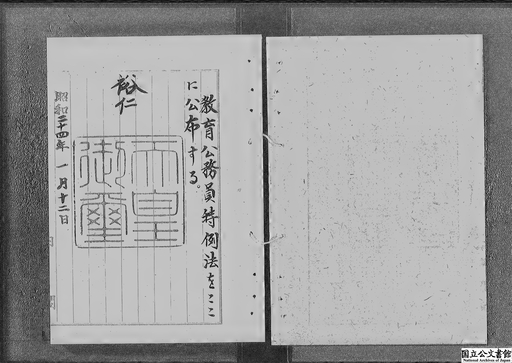 教育公務員特例法をここ
に公布する。
裕仁
天皇
御璽
昭和二十四年一月十二日
国立公文書館
National Archives of Japan